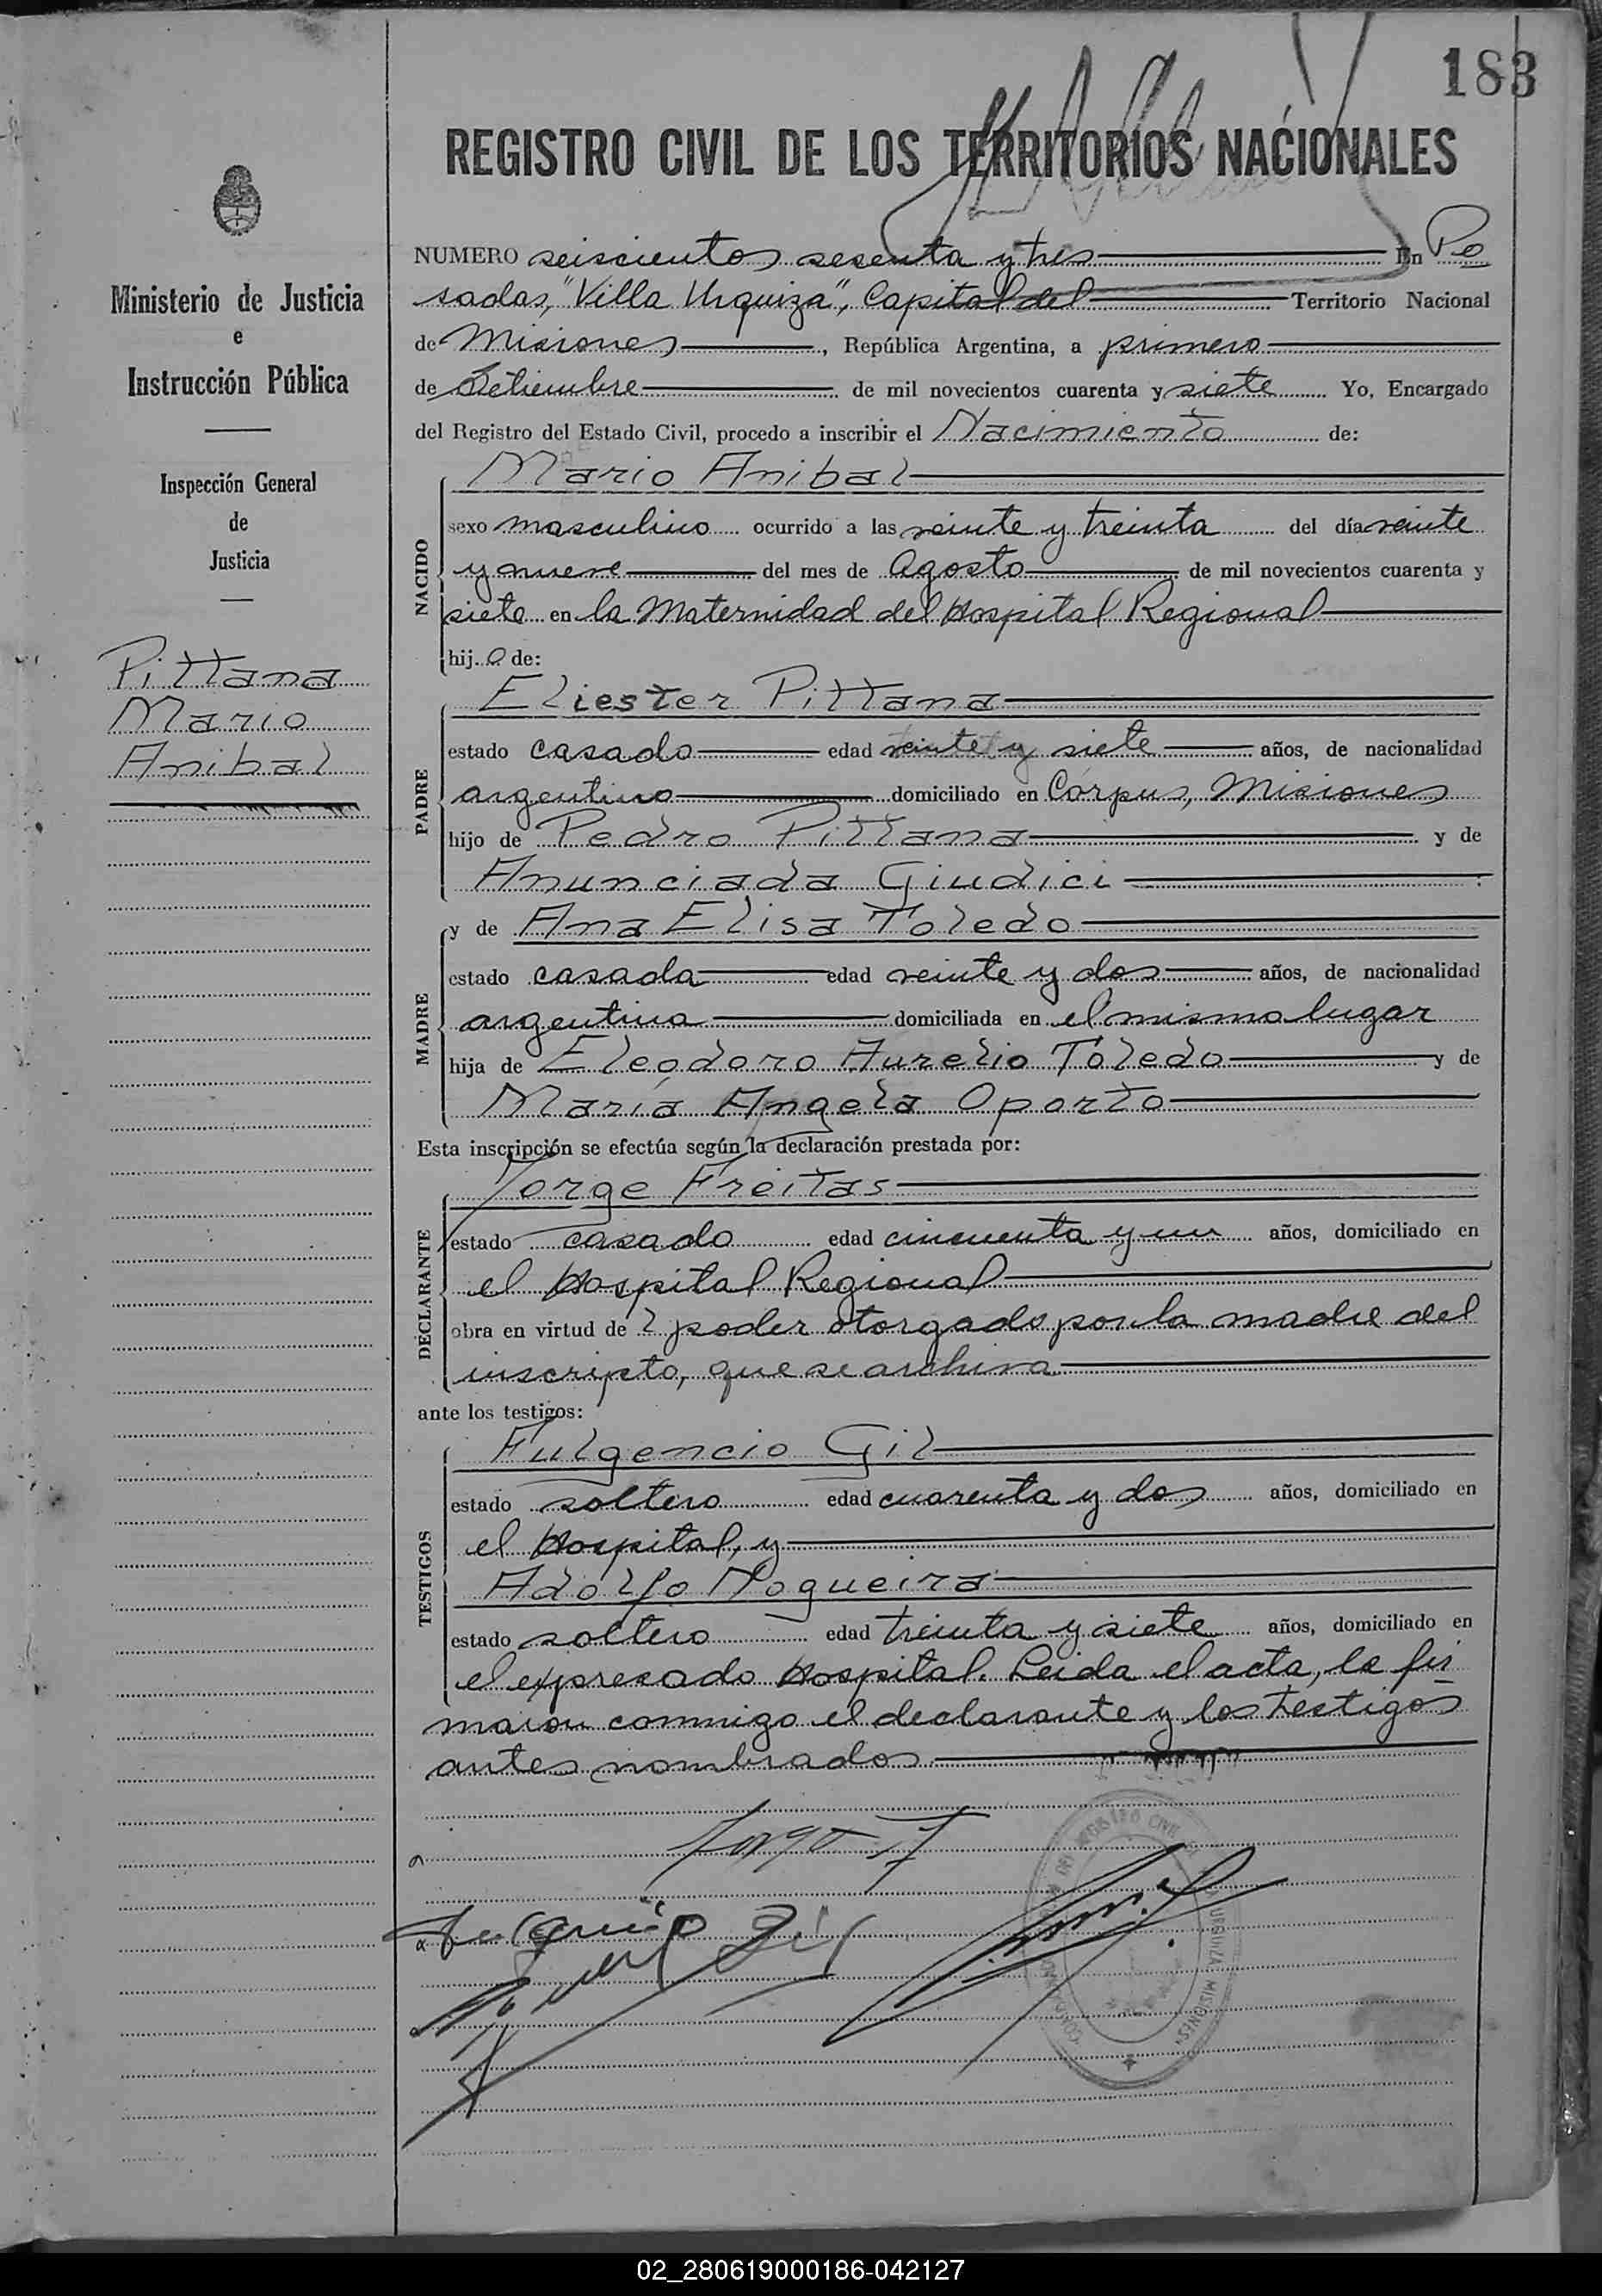 183
REGISTRO CIVIL DE LOS TERRITORIOS NACIONALES
Ministerio de Justicia
e
Instrucción Pública
Inspección General
de
Justicia
Pittana
Mario
Anibal
NUMERO seiscientos sesenta y tres En Po
sadas, "Villa Urquiza", Capital del Territorio Nacional
de Misiones, República Argentina, a primero
de Setiembre de mil novecientos cuarenta y siete Yo, Encargado
del Registro del Estado Civil, procedo a inscribir el Nacimiento de:
NACIDO
Mario Anibal
sexo masculino ocurrido a las veinte y treinta del día veinte
y nueve del mes de Agosto de mil novecientos cuarenta y
siete en la Maternidad del Hospital Regional
hijo de:
PADRE
Eliester Pittana
estado casado edad veinte y siete años, de nacionalidad
argentino domiciliado en Córpus, Misiones
hijo de Pedro Pittana y de
Anunciada Giudici
MADRE
y de Ana Elisa Toledo
estado casada edad veinte y dos años, de nacionalidad
argentina domiciliada en el mismo lugar
hija de Eleodoro Aurelio Toledo y de
María Angela Oporto
Esta inscripción se efectúa según la declaración prestada por:
DECLARANTE
Jorge Freitas
estado casado edad cincuenta y un años, domiciliado en
el Hospital Regional
obra en virtud de l poder otorgado por la madre del
inscripto, que se archiva
ante los testigos:
TESTIGOS
Fulgencio Gil
estado soltero edad cuarenta y dos años, domiciliado en
el Hospital, y
Adolfo Nogueira
estado soltero edad treinta y siete años, domiciliado en
el expresado Hospital. Leida el acta, la fir
maron conmigo el declarante y los testigos
antes nombrados
Jorge F
Gil
REGISTRO CIVIL
URQUIZA MISIONES
02_280619000186-042127